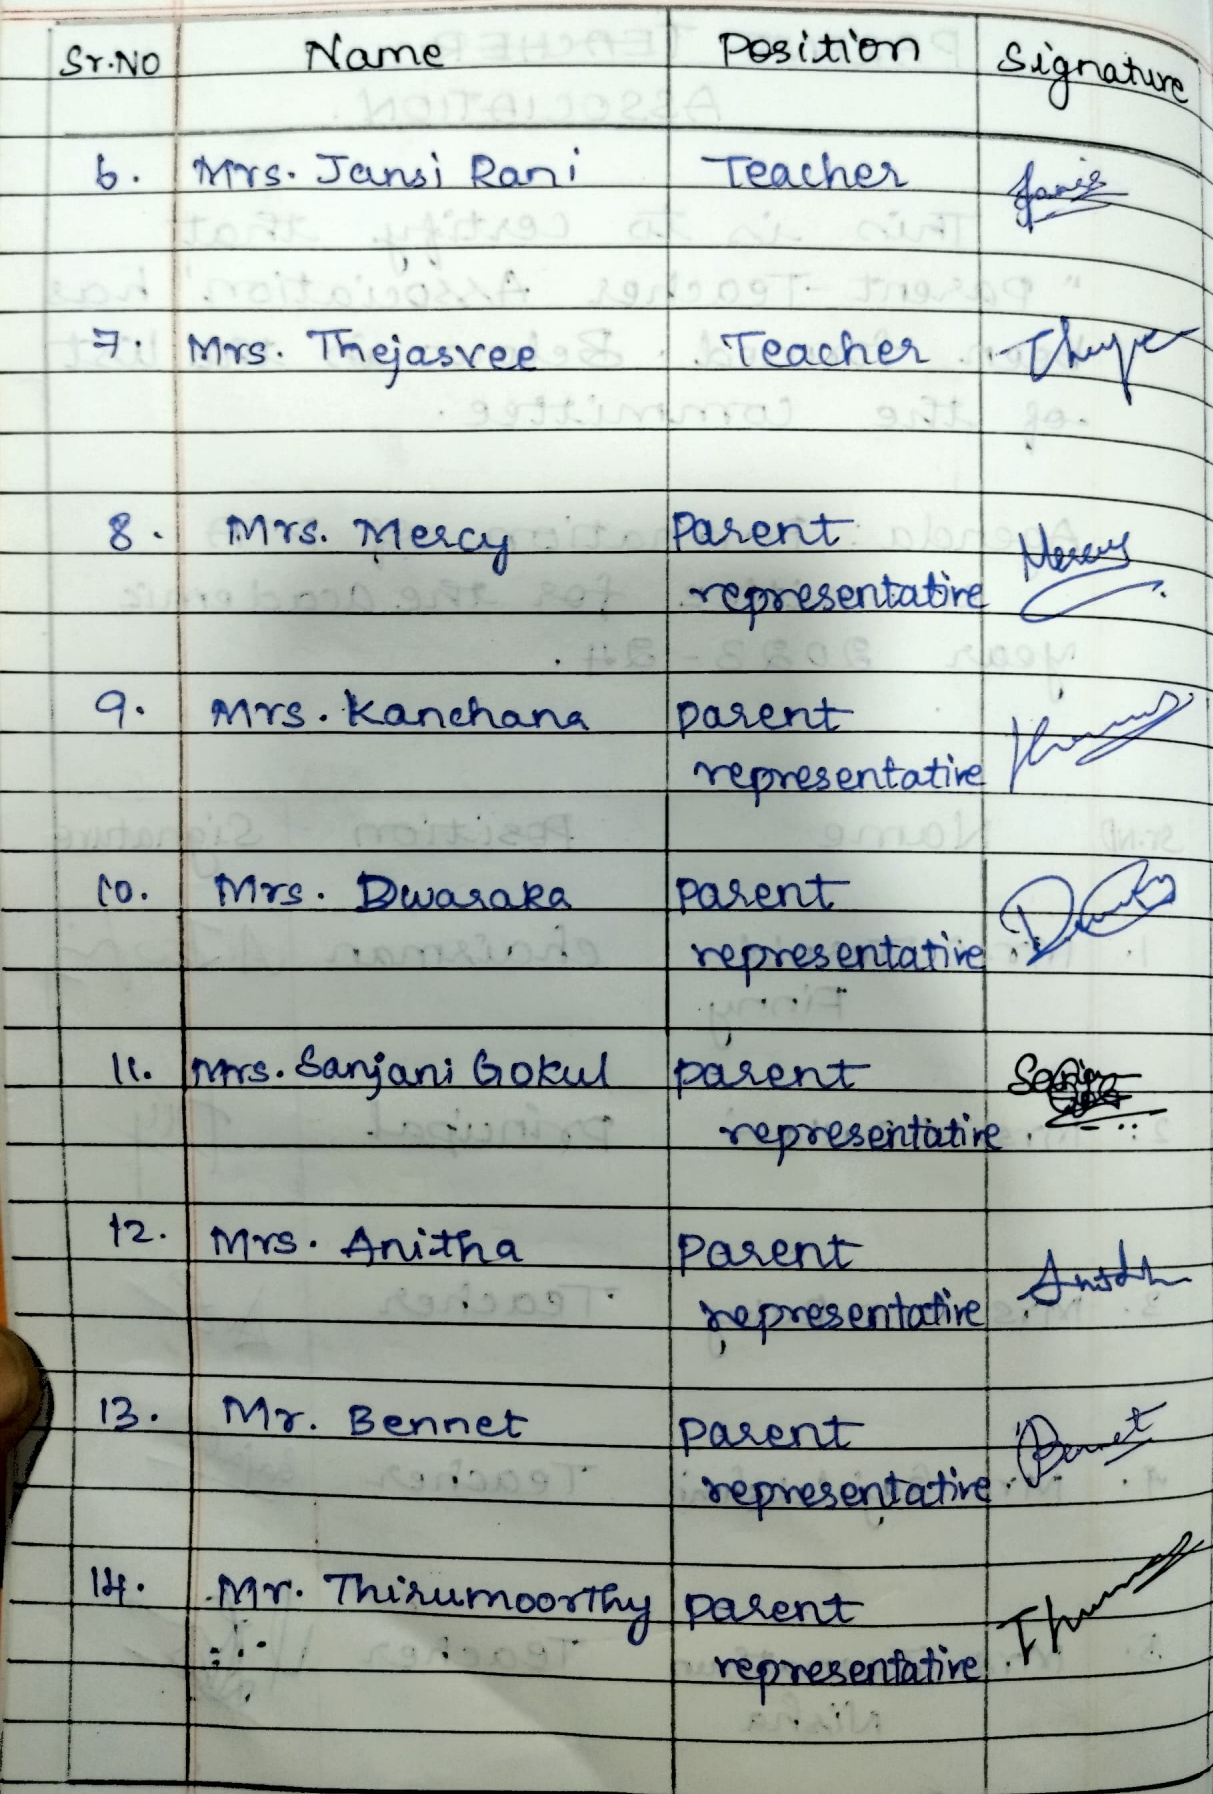 Sr.No Name Position Signature
6. Mrs. Jansi Rani Teacher
7. Mrs. Thejasvee Teacher
8. Mrs. Mercy Parent
representative
9. Mrs. Kanchana Parent
representative
10. Mrs. Dwaraka Parent
representative
11. Mrs. Sanjani Gokul Parent
representative
12. Mrs. Anitha Parent
representative
13. Mr. Bennet Parent
representative
14. Mr. Thirumoorthy Parent
representative